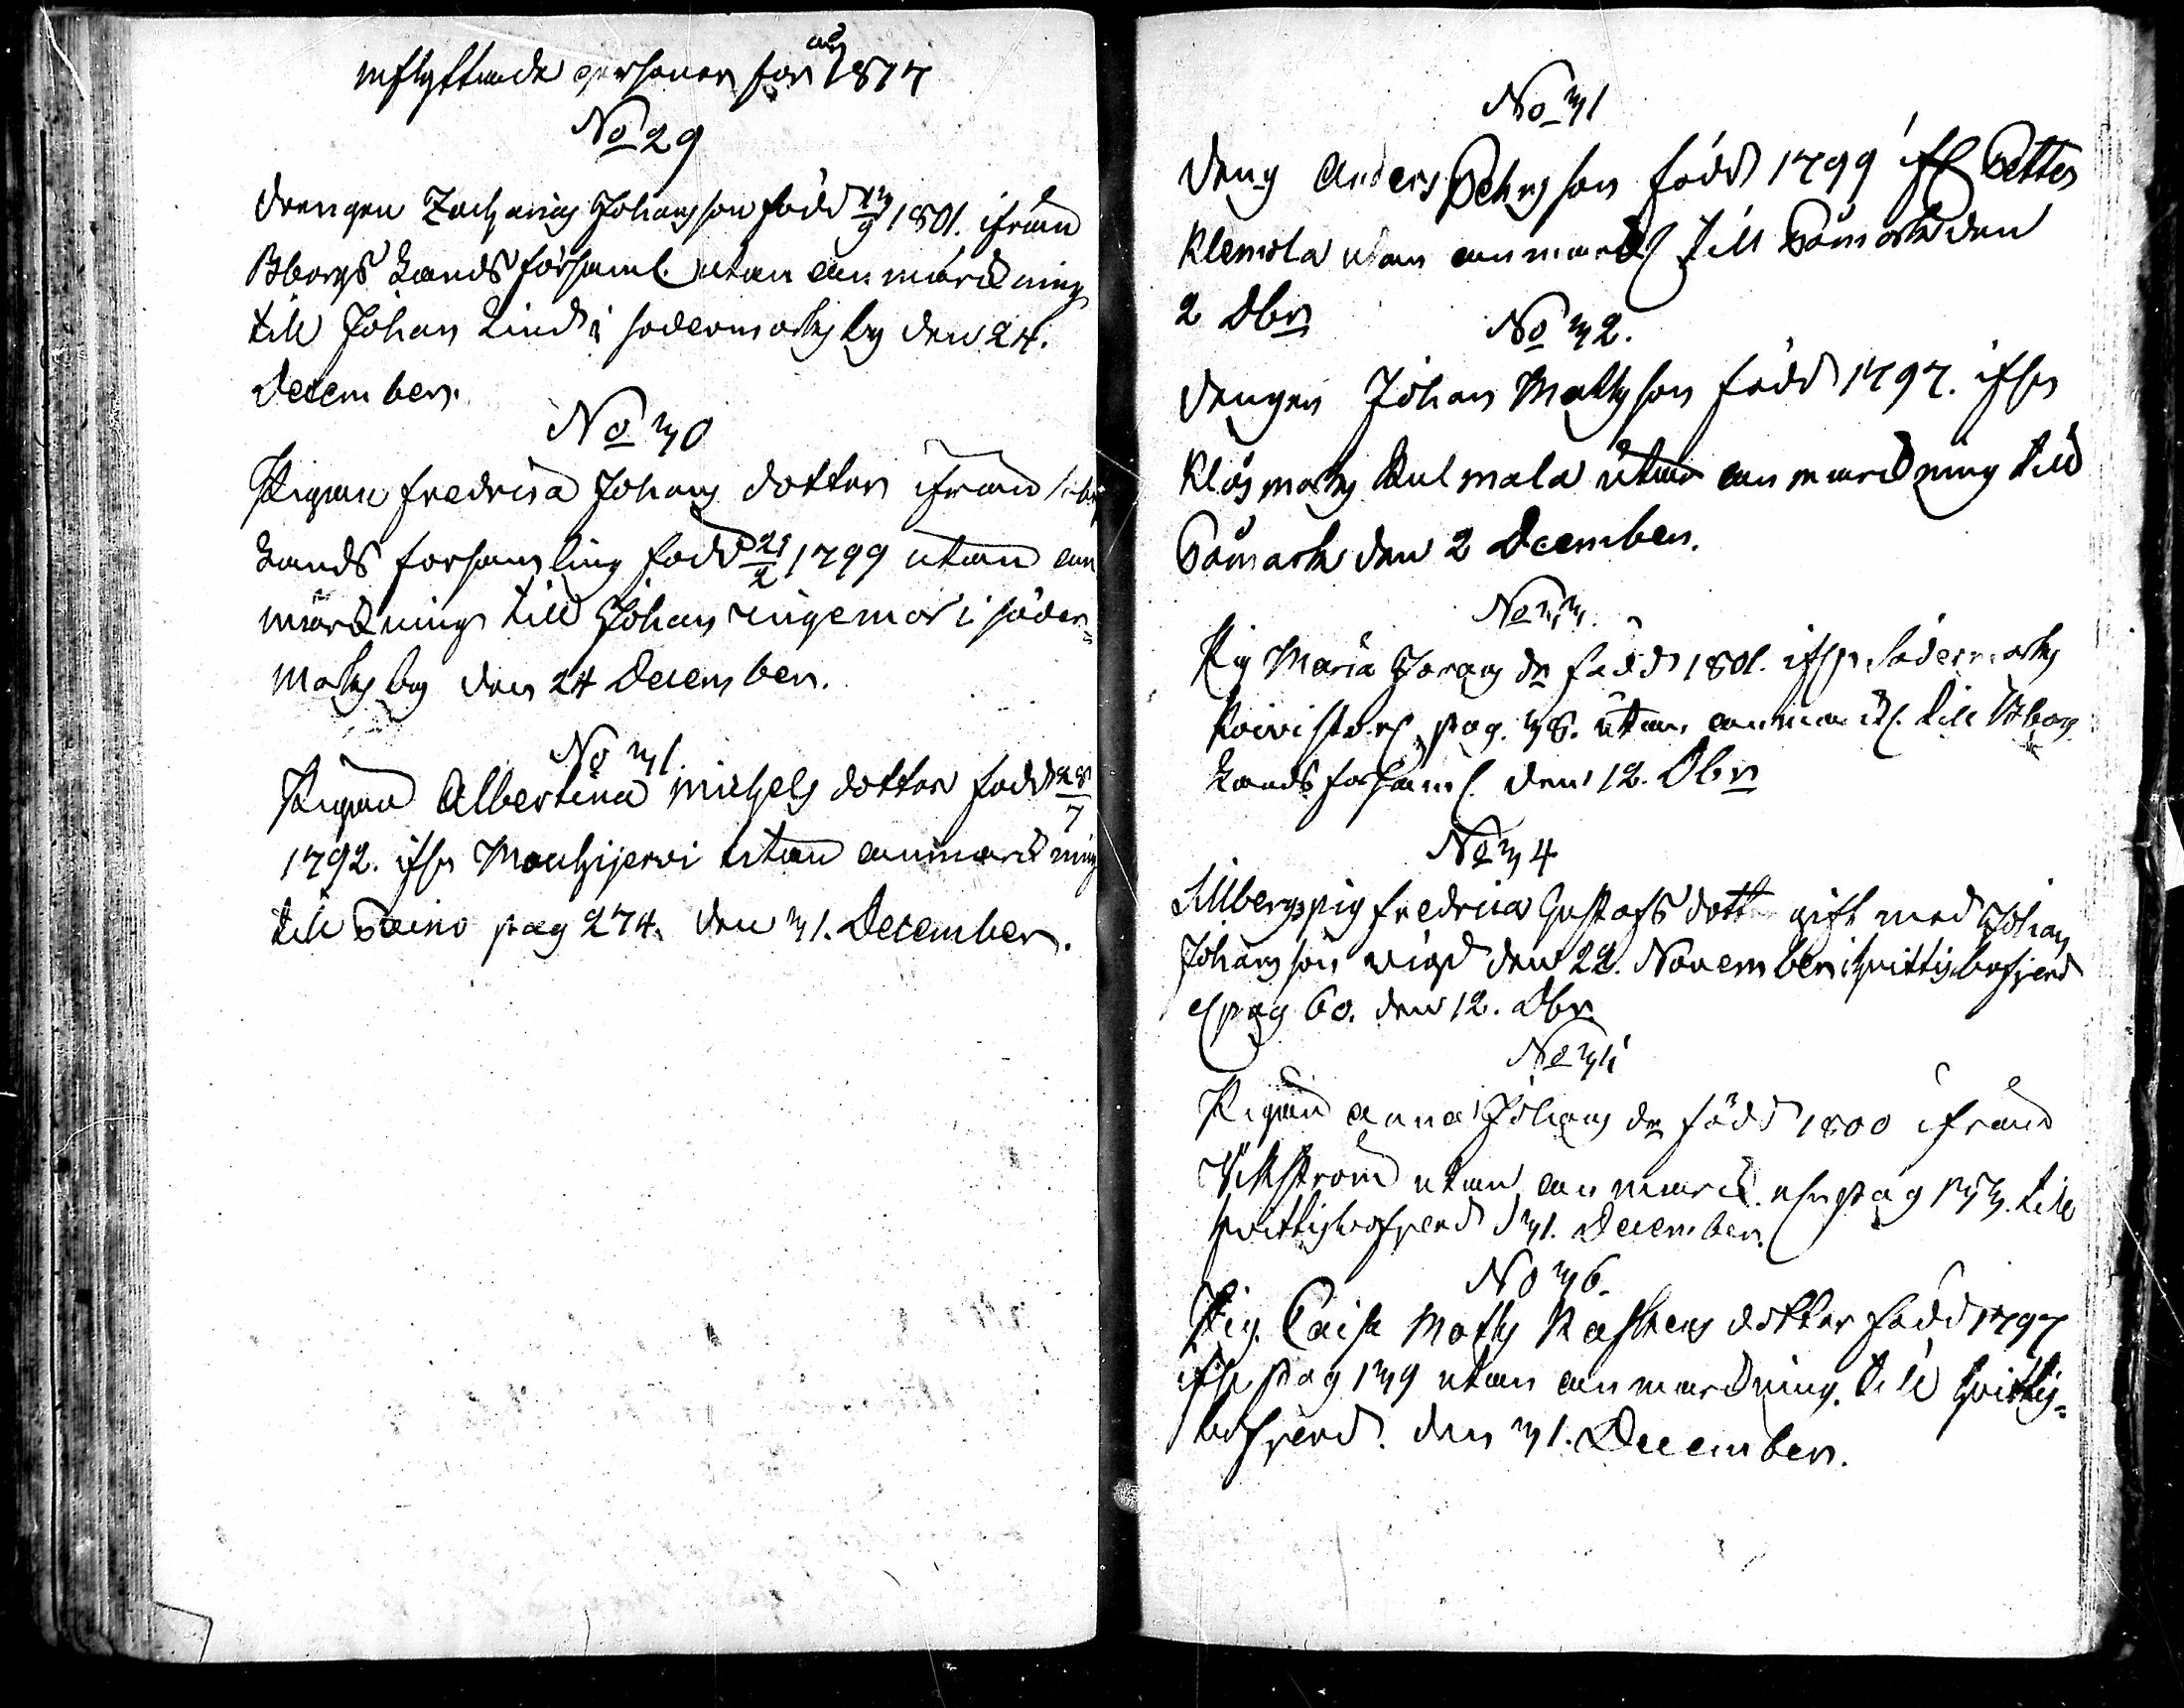 inflyttande personer för år 1817
No 29
Drengen Zacharias Johansson född 13/9 1801. ifrån
Bborgs Landsförsaml. utan anmärckning
till Johan Lind i södermarks by den 24.
December.
No 30
Pigan Fredrica Johans dotter ifrån
Lands forsamling född 21/2 1799 utan an
märckning till Johan Ingemar i söder=
marks by den 24 December.
No 31
Pigan Albertina Michels dotter född 28/7
1792. ifrn Mouhijervi utan anmärckning
till Toino pag 274. den 31. December.
No 31
Dreng Anders Pehrsson född 1799 ifr Petter
Klemola utan anmärck till Påmark den
2 Dbr
No 32.
Drengen Johan Mattsson född 1797. ifrn
Klåsmarks Kulmala utan anmärckning till
Påmark den 2 December.
No 33.
Pig Maria Jorans dr född 1801. ifrn Södermarks
Koivisto pag. 38. utan anmärck. till Bborgs
Landsförsaml. den 12. Dbr
No 34
Sillbergs pig Fredrica Gustafs dotter gift med Johan
Johansson vigd den 22. November i Hvittisbofjerd
pag 60. den 12. Dbr.
No 35
Pigan Anna Johans dr född 1800 ifrån
Vikström utan anmärck. pag 153. till
Hvittisbofjerd d 31. December.
No 36.
Pig. Caisa Matts Raskens dotter född 1797
ifrn pag 139 utan anmärckning. till Hvittis=
bofjerd. den 31. December.